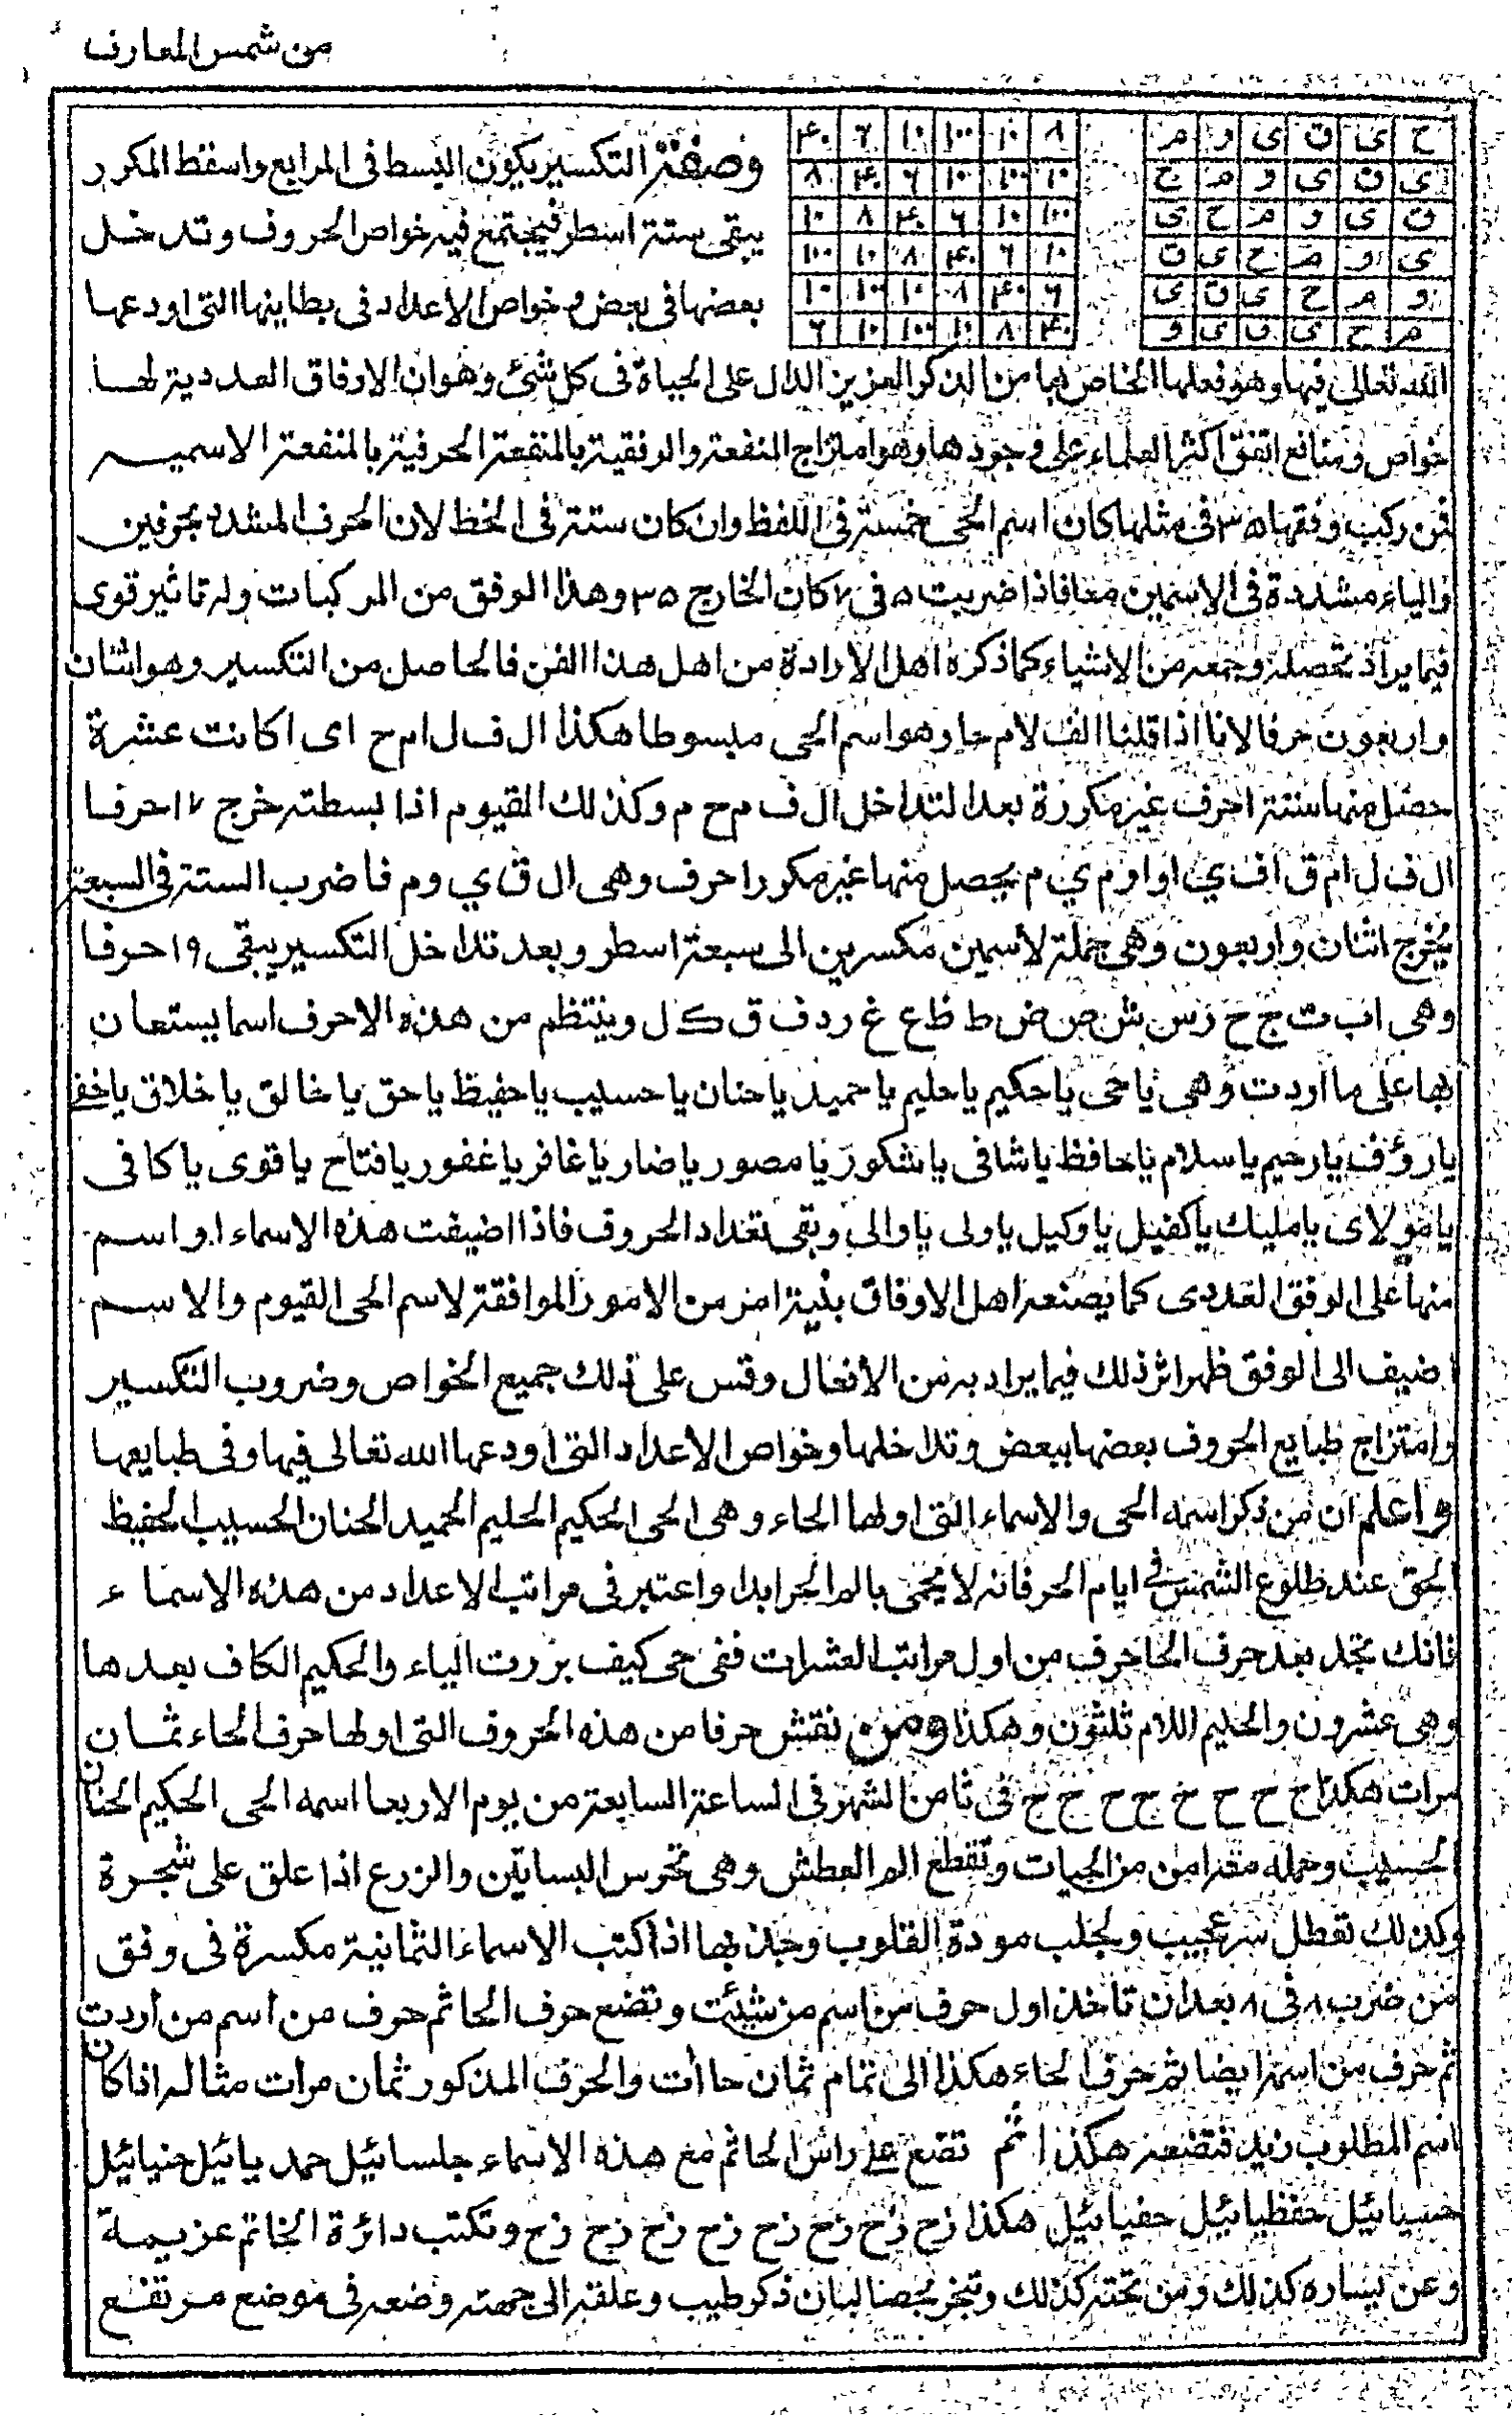 من شمس المعارف
ح ى ق ى و م
ى ق ى و م ح
ق ى و م ح ى
ى و م ح ى ق
و م ح ى ق ى
م ح ى ق ى و
٨ ١٠ ١٠٠ ١٠ ٦ ۴٠
١٠ ١٠٠ ١٠ ٦ ۴٠ ٨
١٠٠ ١٠ ٦ ۴٠ ٨ ١٠
١٠ ٦ ۴٠ ٨ ١٠ ١٠٠
٦ ۴٠ ٨ ١٠ ١٠٠ ١٠
۴٠ ٨ ١٠ ١٠٠ ١٠ ٦
وصفة التكسير يكون البسط فى المرابع واسقط المكرر
يبقى ستة اسطر فيجتمع فيه خواص الحروف وتدخل
بعضها فى بعض وخواص الاعداد فى بطاينها التى اودعها
الله تعالى فيها وهو فعلها الخاص بها من الذكر العزيز الدال على الحياة فى كل شئ وهو ان الاوفاق العددية لها
خواص ومنافع اتفق اكثر العلماء على وجودها وهو امتزاج المنفعة والوفقية بالمنفعة الحرفية بالمنفعة الاسميه
فمن ركب وفقها ٣۵ فى مثلها كان اسم الحى خمسة فى اللفظ وان كان ستة فى الخط لان الحرف المشدد بحرفين
والياء مشددة فى الاسمين معا فاذا ضربت ۵ فى ٧ كان الخارج ٣۵ وهذا الوفق من المركبات وله تاثير قوى
فيما يراد تحصله وجمعه من الاشياء كما ذكره اهل الارادة من اهل هذا الفن فالحاصل من التكسير وهو اثنان
واربعون حرفا لانا اذا قلنا الف لام حا وهو اسم الحى مبسوطا هكذا ال ف ل ام ح اى ا كانت عشرة
حصل منها ستة احرف غير مكررة بعد التداخل ال ف م ح م وكذلك القيوم اذا بسطته خرج ١٧ حرفا
ال ف ل ام ق اف ي ا واوم ي م يحصل منها غير مكرر احرف وهى ال ق ي وم فاضرب الستة فى السبعة
يخرج اثنان واربعون وهى جملة لاسمين مكسرين الى سبعة اسطر وبعد تداخل التكسير يبقى ١٩ حرفا
وهى اب ت ج ح ز س ش ص ض ط ظ ع غ رد ف ق ك ل وينتظم من هذه الاحرف اسما يستعان
بها على ما اردت وهى يا حى يا حكيم يا حليم يا حميد يا حنان يا حسيب يا حفيظ يا حق يا خالق يا خلاق يا خفى
يا رؤف يا رحيم يا سلام يا حافظ يا شافى يا شكور يا مصور يا ضار يا غافر يا غفور يا فتاح يا قوى يا كافى
يا مولاى يا مليك يا كفيل يا وكيل يا ولى يا والى وبقى تعداد الحروف فاذا اضيفت هذه الاسماء او اسم
منها على الوفق العددى كما يصنعه اهل الاوفاق بنية امر من الامور الموافقة لاسم الحى القيوم والاسم
اضيف الى الوفق ظهر اثر ذلك فيما يراد به من الافعال وقس على ذلك جميع الخواص وضروب التكسير
وامتزاج طبايع الحروف بعضها ببعض وتداخلها وخواص الاعداد التى اودعها الله تعالى فيها وفى طبايعها
واعلم ان من ذكر اسمه الحى والاسماء التى اولها الحاء وهى الحى الحكيم الحليم الحميد الحنان الحسيب الحفيظ
الحق عند طلوع الشمس فى ايام الحر فانه لا يحمى بالم الحر ابدا واعتبر فى مراتب الاعداد من هذه الاسماء
فانك تجد بعد حرف الحا حرف من اول مراتب العشرات ففى حى كيف برزت الياء والحكيم الكاف بعدها
وهى عشرون والحليم اللام ثلثون وهكذا ومن نقش حرفا من هذه الحروف التى اولها حرف الحاء ثمان
مرات هكذا ح ح ح ح ح ح ح ح فى ثامن الشهر فى الساعة السابعة من يوم الاربعا اسمه الحى الحكيم الحنان
الحسيب وحمله معه امن من الحيات وتقطع الم العطش وهى تحرس البساتين والزرع اذا علق على شجرة
وكذلك سر عجيب ولجلب مودة القلوب وجذبها اذا كتب الاسماء الثمانية مكسرة فى وفق
من ضرب ٨ فى ٨ بعد ان تاخذ اول حرف من اسم من شئت وتضع حرف الحا ثم حرف من اسم من اردت
ثم حرف من اسمه ايضا ثم حرف الحاء هكذا الى تمام ثمان حاات والحرف المذكور ثمان مرات مثاله اذا كان
اسم المطلوب زيد فتضعه هكذا ثم تضع على راس الخاتم مع هذه الاسماء جلسائيل حمديائيل حنيائيل
حسيبائيل حفظيائيل حفيائيل هكذا زح زح زح زح زح زح زح زح وتكتب دائرة الخاتم عزيمة
وعن يساره كذلك ومن تحته كذلك وتبخر بحصا لبان ذكر طيب وعلقه الى جهته وضعه فى موضع مرتفع